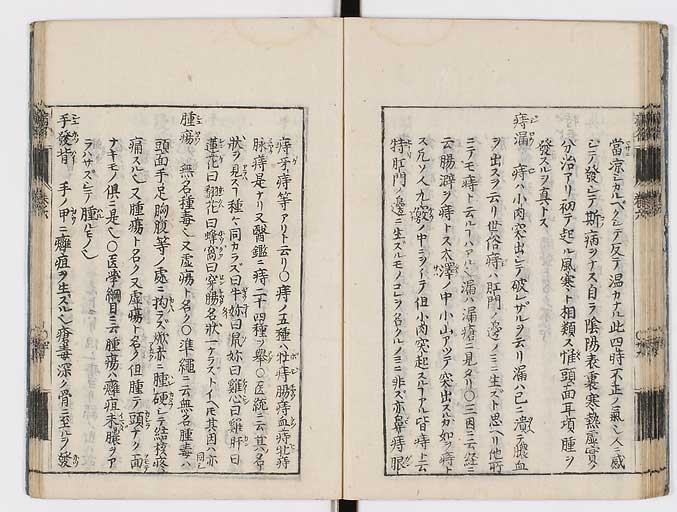 當ニ凉シカルヘクシテ反テ温カナル此四時不正ノ氣シ人ニ感
シテ發シテ斯ノ病ヲナス自ラ陰陽表裏寒熱虚實ノ
分治アリ初テ起ル風寒ト相類ス惟頭面耳項腫ヲ
發スルヲ真トス
痔漏 痔ハ小肉突出シテ破レサルヲ云リ漏ハ已ニ潰テ膿血
ヲ出スヲ云リ世俗痔ハ肛門ノ邊ノミニ生スト思ヘリ他所
ニテモ痔ト云ルハアル漏ハ漏瘡ニ見タリ〇三因ニ云
云腸澼ヲ痔トス大澤ノ中小山アツテ突出スカ如ヲ痔ト
ス凡ソ人九竅ノ中ニヲイテ但小肉突起スルヲ皆痔ト云
特リ肛門ノ邊ニ生スルモノコレヲ名クルノミニ非ス亦鼻痔眼
痔牙痔等アリト云リ〇痔ノ五種ハ牡痔腸痔血痔牝痔
脉痔是ナリ又醫鑑ニ痔二十四種ヲ舉〇医統ニ云其ノ名
狀ヲ見ス種々同カラス曰牛妳曰鼠妳曰雞心曰雞肝曰
蓮花曰翻花曰蜂窩曰穿腸名狀一ナラストイヘトモ其因ハ亦同シ
腫瘍 無名種毒シ又虚瘍ト名ク〇準繩ニ云無名腫毒ハ
頭面手足胸腹等ノ處ニ拘ラス焮赤ニ腫硬シテ結核疼
痛スル 又腫瘍ト名ク又虚瘍ト名ク但腫テ頭ナク面
ナキモノ俱ニ是 〇医学綱目ニ云腫瘍ハ癰疽未膿ヲア
ラハサスシテ腫ルモノ
手發背 手ノ甲ニ癰疽ヲ生スル 瘡毒深ク骨ニ至ルヲ發